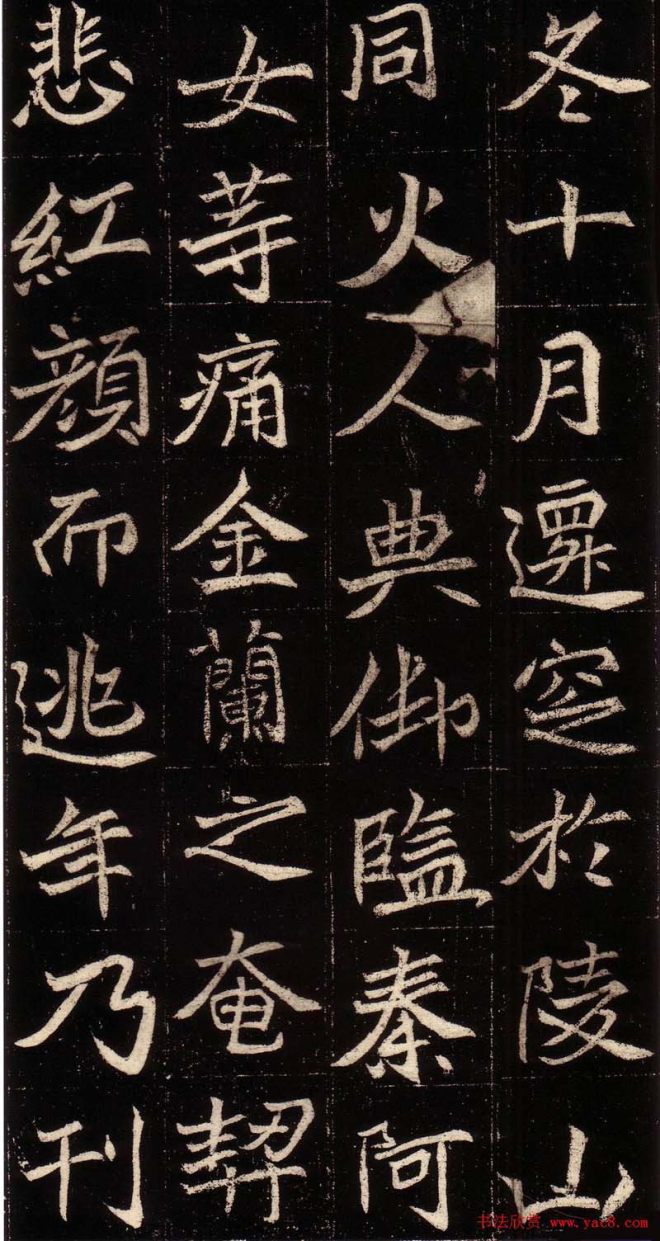 冬十月遷窆於陵山
同火人典御監秦阿
女等痛金蘭之奄契
悲紅顏而逃年乃刊
书法欣赏 www.yac8.com